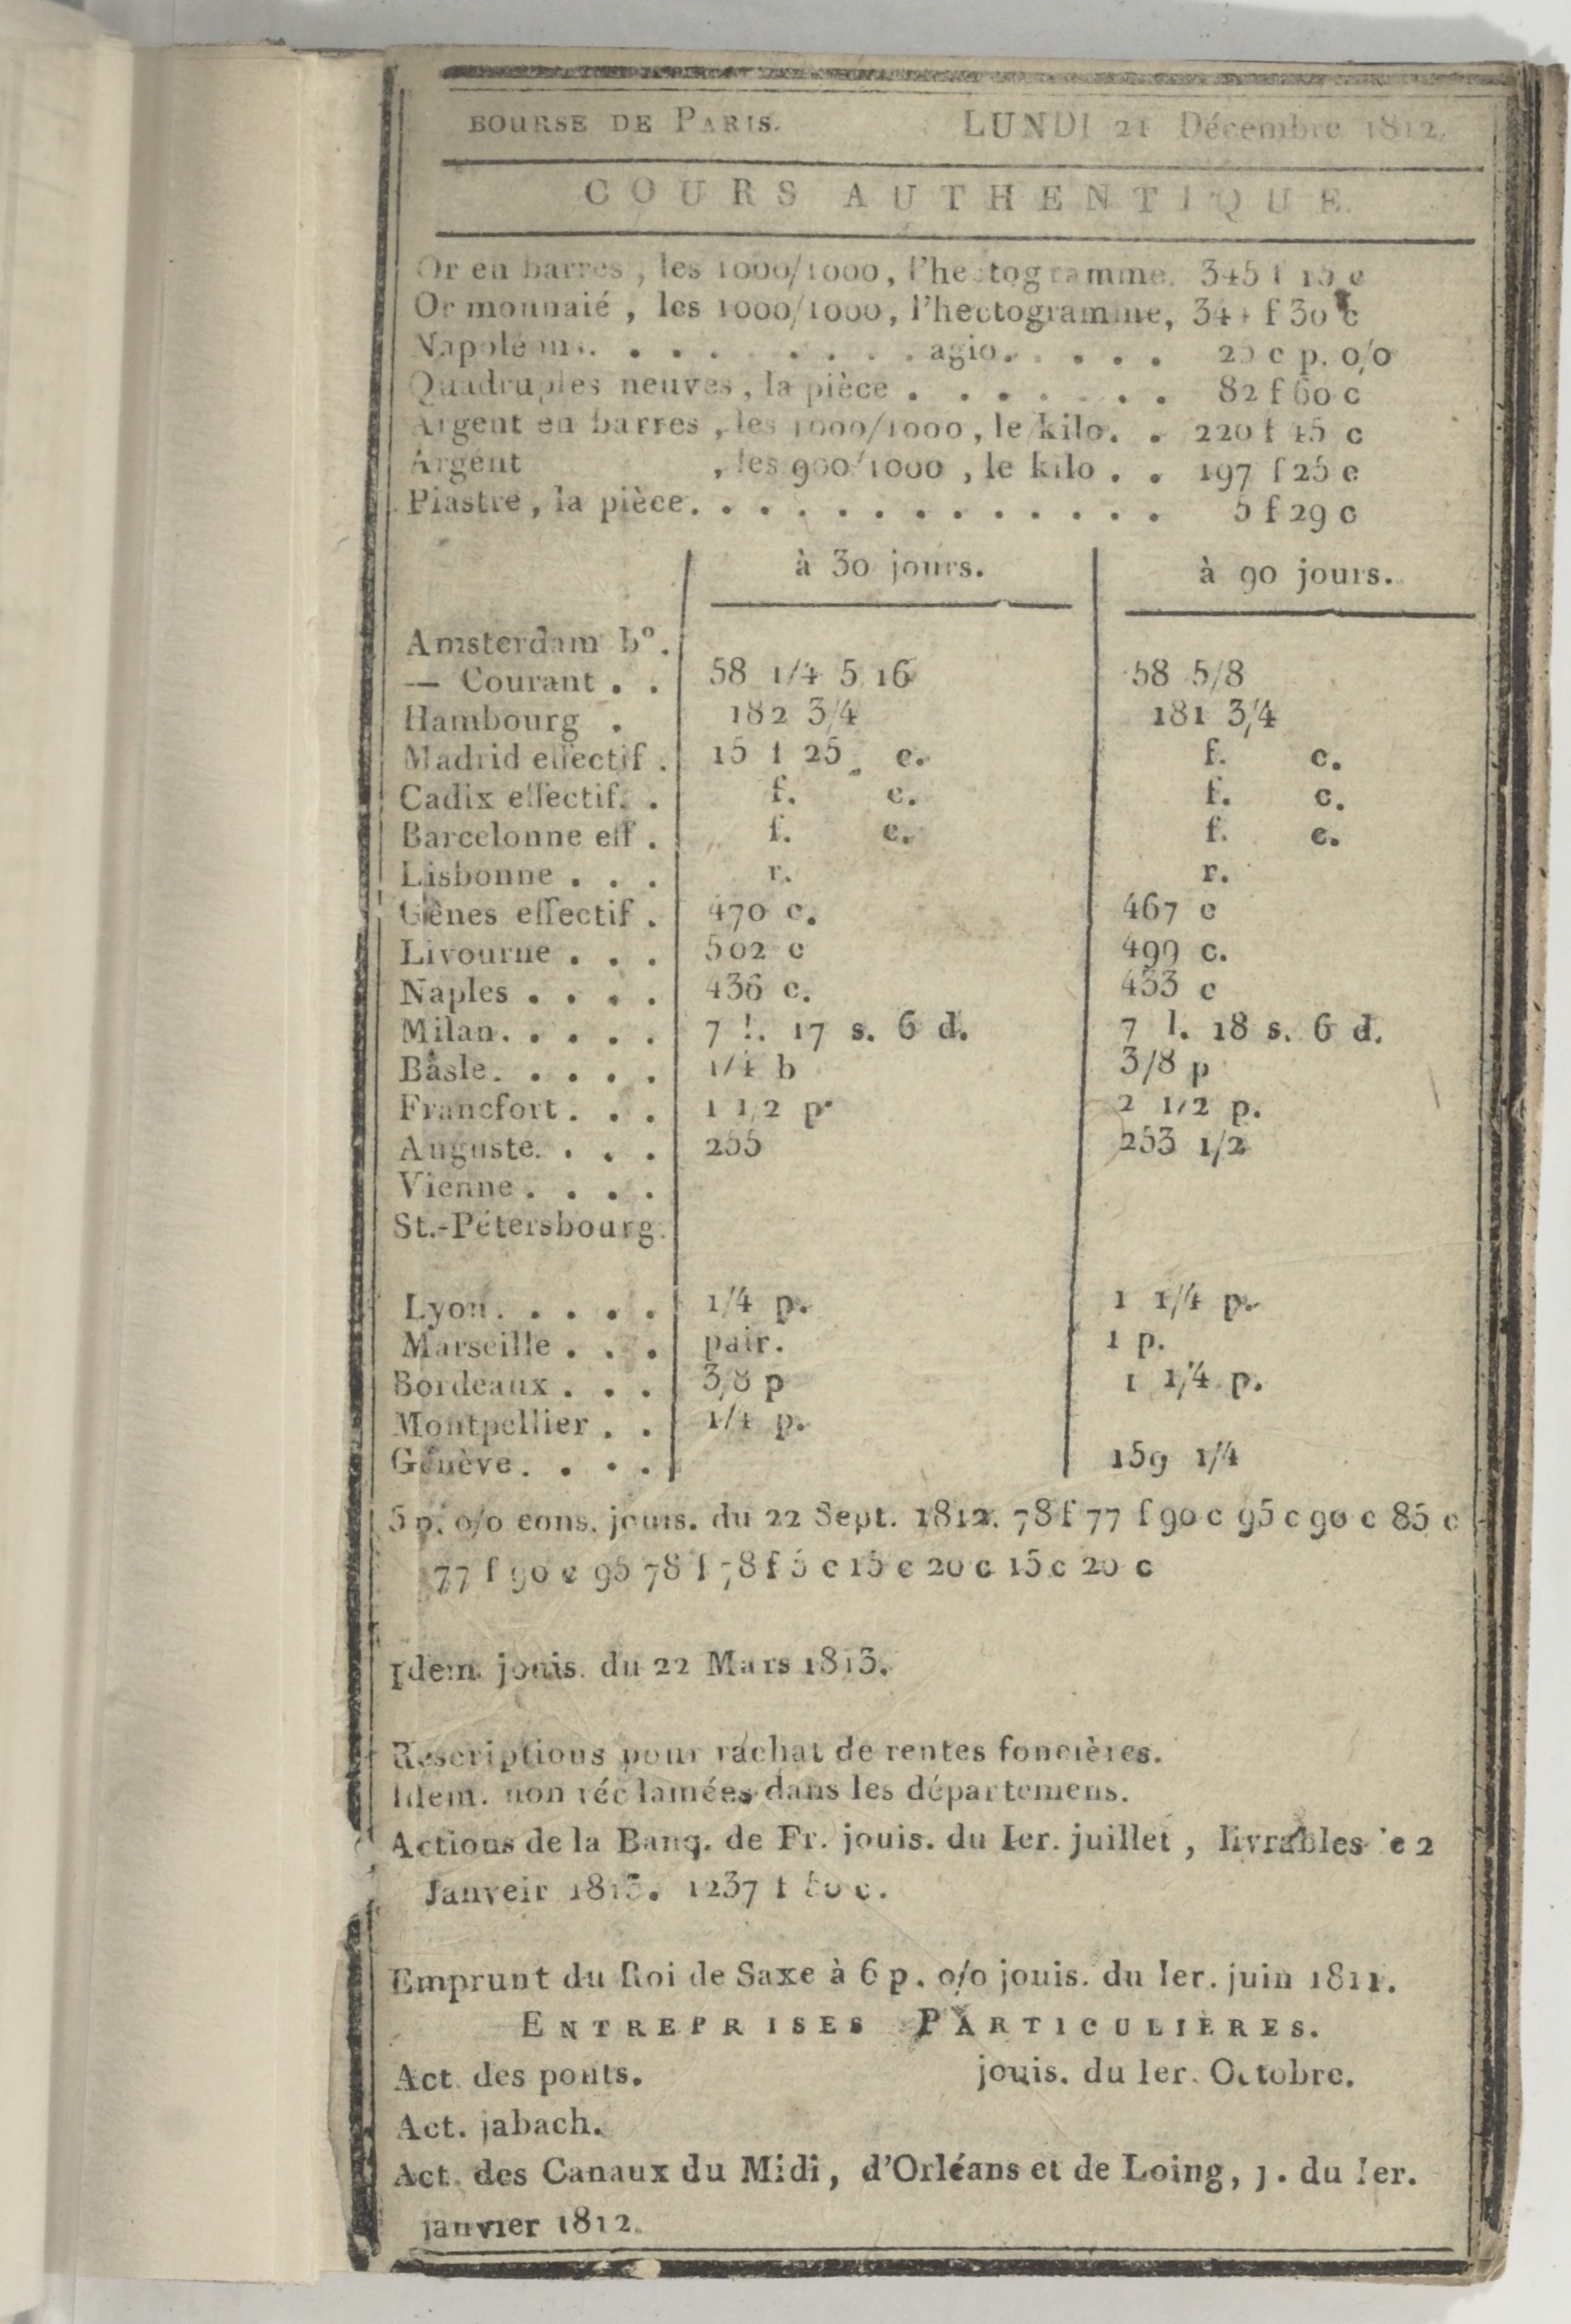 BOURSE DE PARIS. LUNDI 21 Décembre 1812.
COURS AUTHENTIQUE.
Or en barres, les 1000/1000, l'hectogramme. 345 f 15 c
Or monnaié, les 1000/1000, l'hectogramme, 344 f 30 c
Napoléons. . . . . . . . . agio. . . . . 25 c p. o/o
Quadruples neuves, la pièce . . . . . . . 82 f 60 c
Argent en barres, les 1000/1000, le kilo. . 220 f 45 c
Argent , les 900/1000, le kilo . . 197 f 25 c
Piastre, la pièce. . . . . . . . . . . . . . 5 f 29 c
à 30 jours. à 90 jours.
Amsterdam bº.
— Courant . . 58 1/4 5 16 58 5/8
Hambourg . 182 3/4 181 3/4
Madrid effectif . 15 f 25 c. f. c.
Cadix effectif. . f. c. f. c.
Barcelonne eff . f. c. f. c.
Lisbonne . . . r. r.
Gènes effectif . 470 c. 467 c
Livourne . . . 502 c 499 c.
Naples . . . . 436 c. 433 c
Milan. . . . . 7 l. 17 s. 6 d. 7 l. 18 s. 6 d.
Bâsle. . . . . 1/4 b 3/8 p
Francfort . . . 1 1/2 p. 2 1/2 p.
Auguste. . . . 255 253 1/2
Vienne . . . .
St.-Pétersbourg.
Lyon. . . . . 1/4 p. 1 1/4 p.
Marseille . . . pair. 1 p.
Bordeaux . . . 3/8 p 1 1/4 p.
Montpellier . . 1/4 p.
Genève. . . . 159 1/4
5 p. o/o cons. jouis. du 22 Sept. 1812. 78 f 77 f 90 c 95 c 90 c 85 c
77 f 90 c 95 78 f 78 f 5 c 15 c 20 c 15 c 20 c
Idem. jouis. du 22 Mars 1813.
Rescriptions pour rachat de rentes foncières.
Idem. non réclamées dans les départemens.
Actions de la Banq. de Fr. jouis. du Ier. juillet, livrables le 2
Janveir 1813. 1237 f 50 c.
Emprunt du Roi de Saxe à 6 p. o/o jouis. du Ier. juin 1811.
ENTREPRISES PARTICULIÈRES.
Act. des ponts. jouis. du Ier. Octobre.
Act. jabach.
Act. des Canaux du Midi, d'Orléans et de Loing, j. du Ier.
janvier 1812.